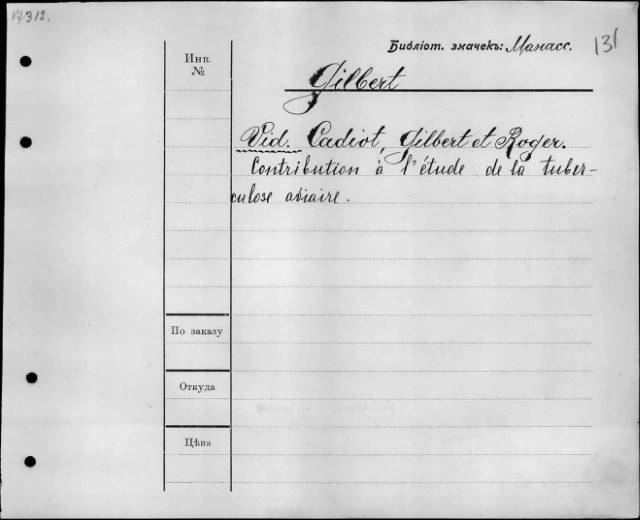 17312.
Библіот. значекъ: Манасс.
131
Инв.
№
Gilbert
Vid. Cadiot, Gilbert et Roger.
Contribution à l'étude de la tuber-
culose aviaire.
По заказу
Откуда
Цѣна